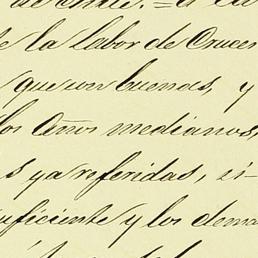 de Chile. = A la
e la Labor de Cruces
que son buenas, y
los Años medianos,
s ya referidas, si-
uficiente y los dema